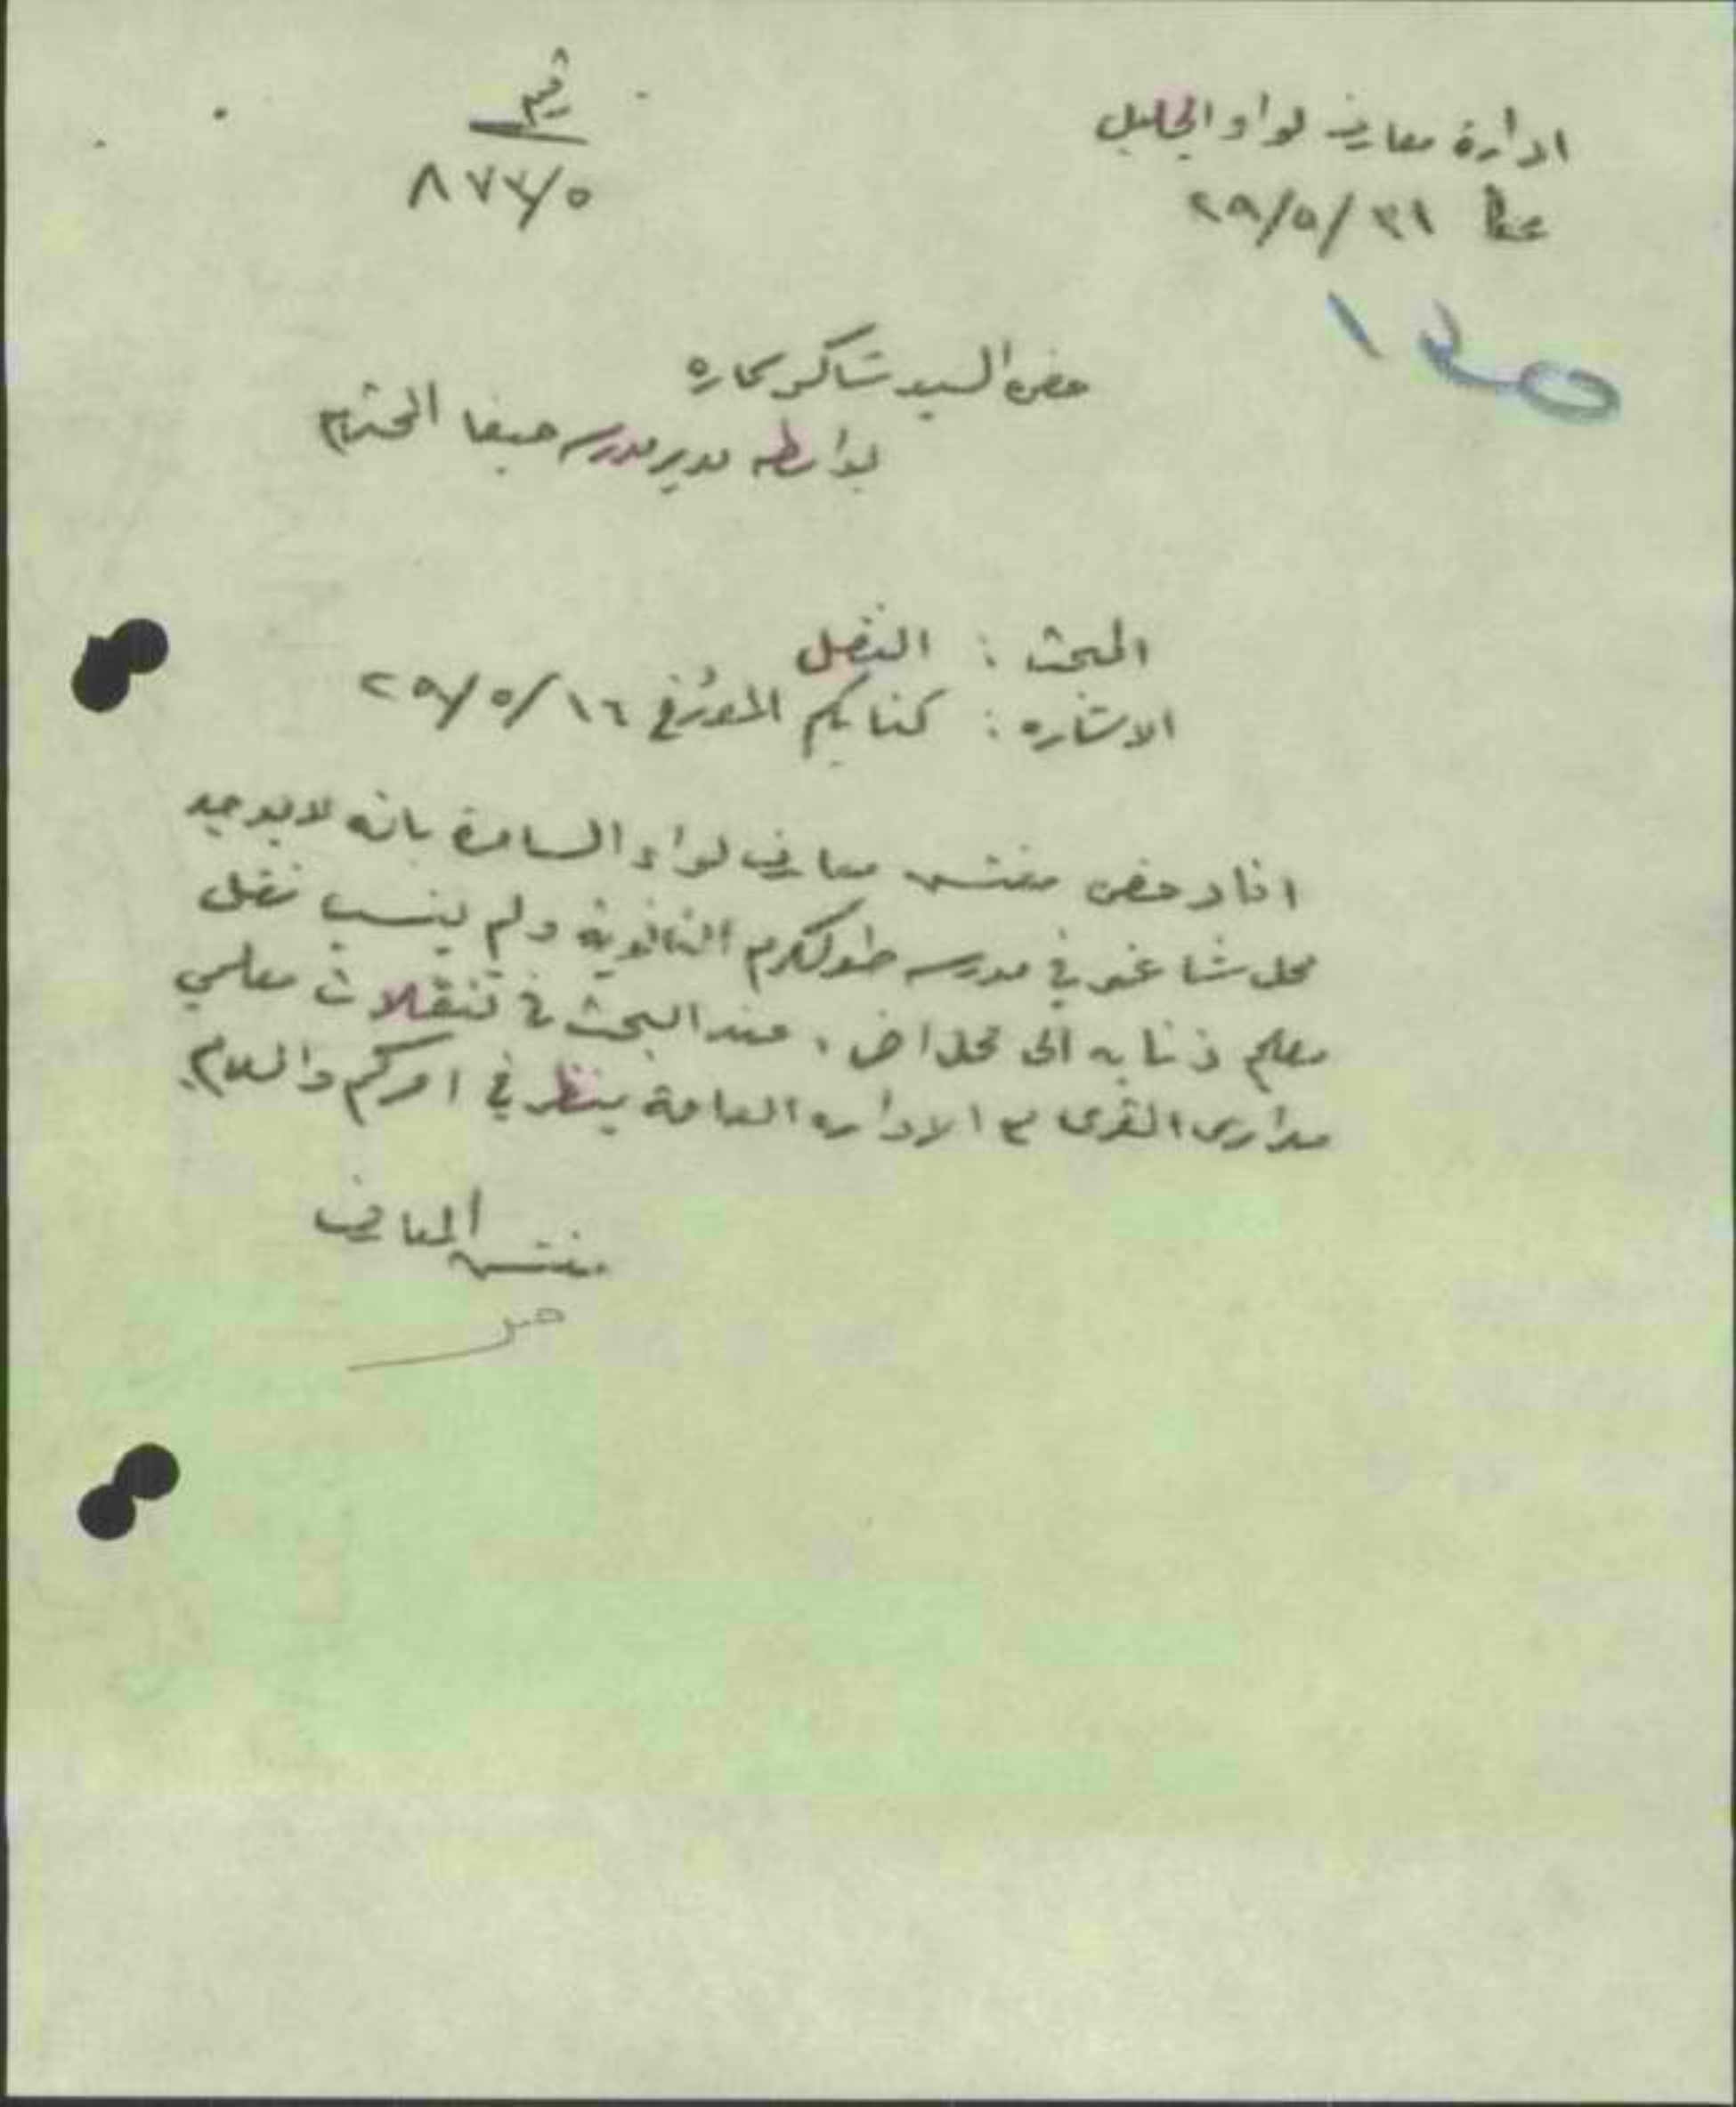 ادارة معارف لواء الجليل
عكا ٣١/٥/٢٩
رقم
٨٧٧/٥
حضرة السيد شاكر
بواسطة مدير مدرسة حيفا المحترم
المبحث : النقل
الاشاره : كتابكم المؤرخ ١٦/٥/٢٩
افاد حضرة مفتش معارف لواء السامرة بانه لا يوجد
محل شاغر في مدرسة طولكرم الثانوية ولم ينسب نقل
معلم ذنابه الى محل اخر ، عند البحث في تنقلات معلمي
مدارس القرى الادارة العامة ينظر في امركم والسلام
مفتش المعارف